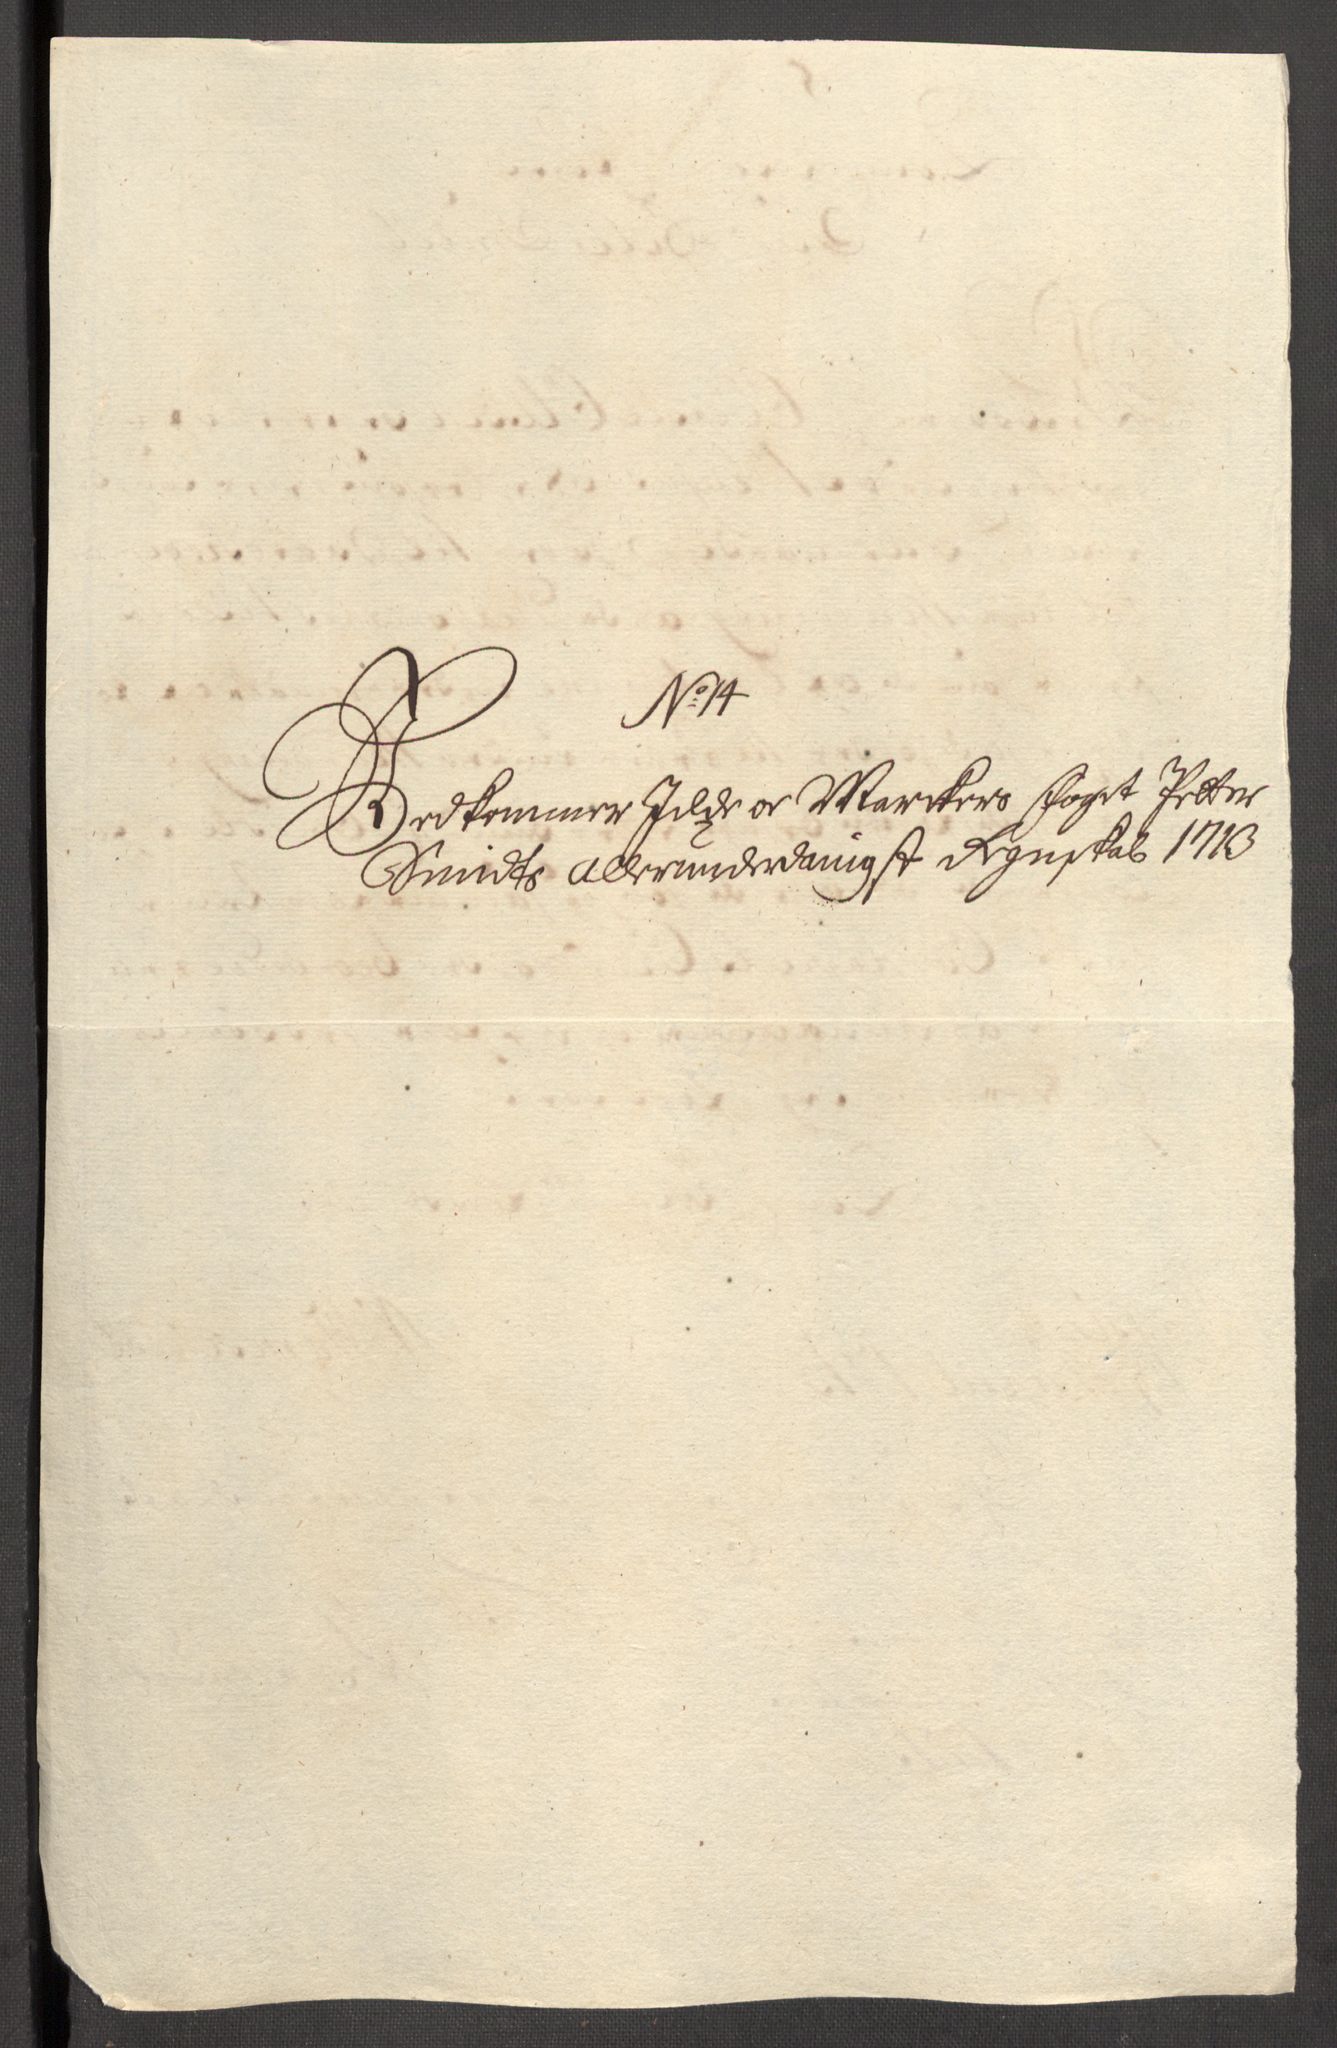 No: 14
Vedkommer Idde oc Marckers foget Petter
Smidts allerunderdanigst Regnskab 1713